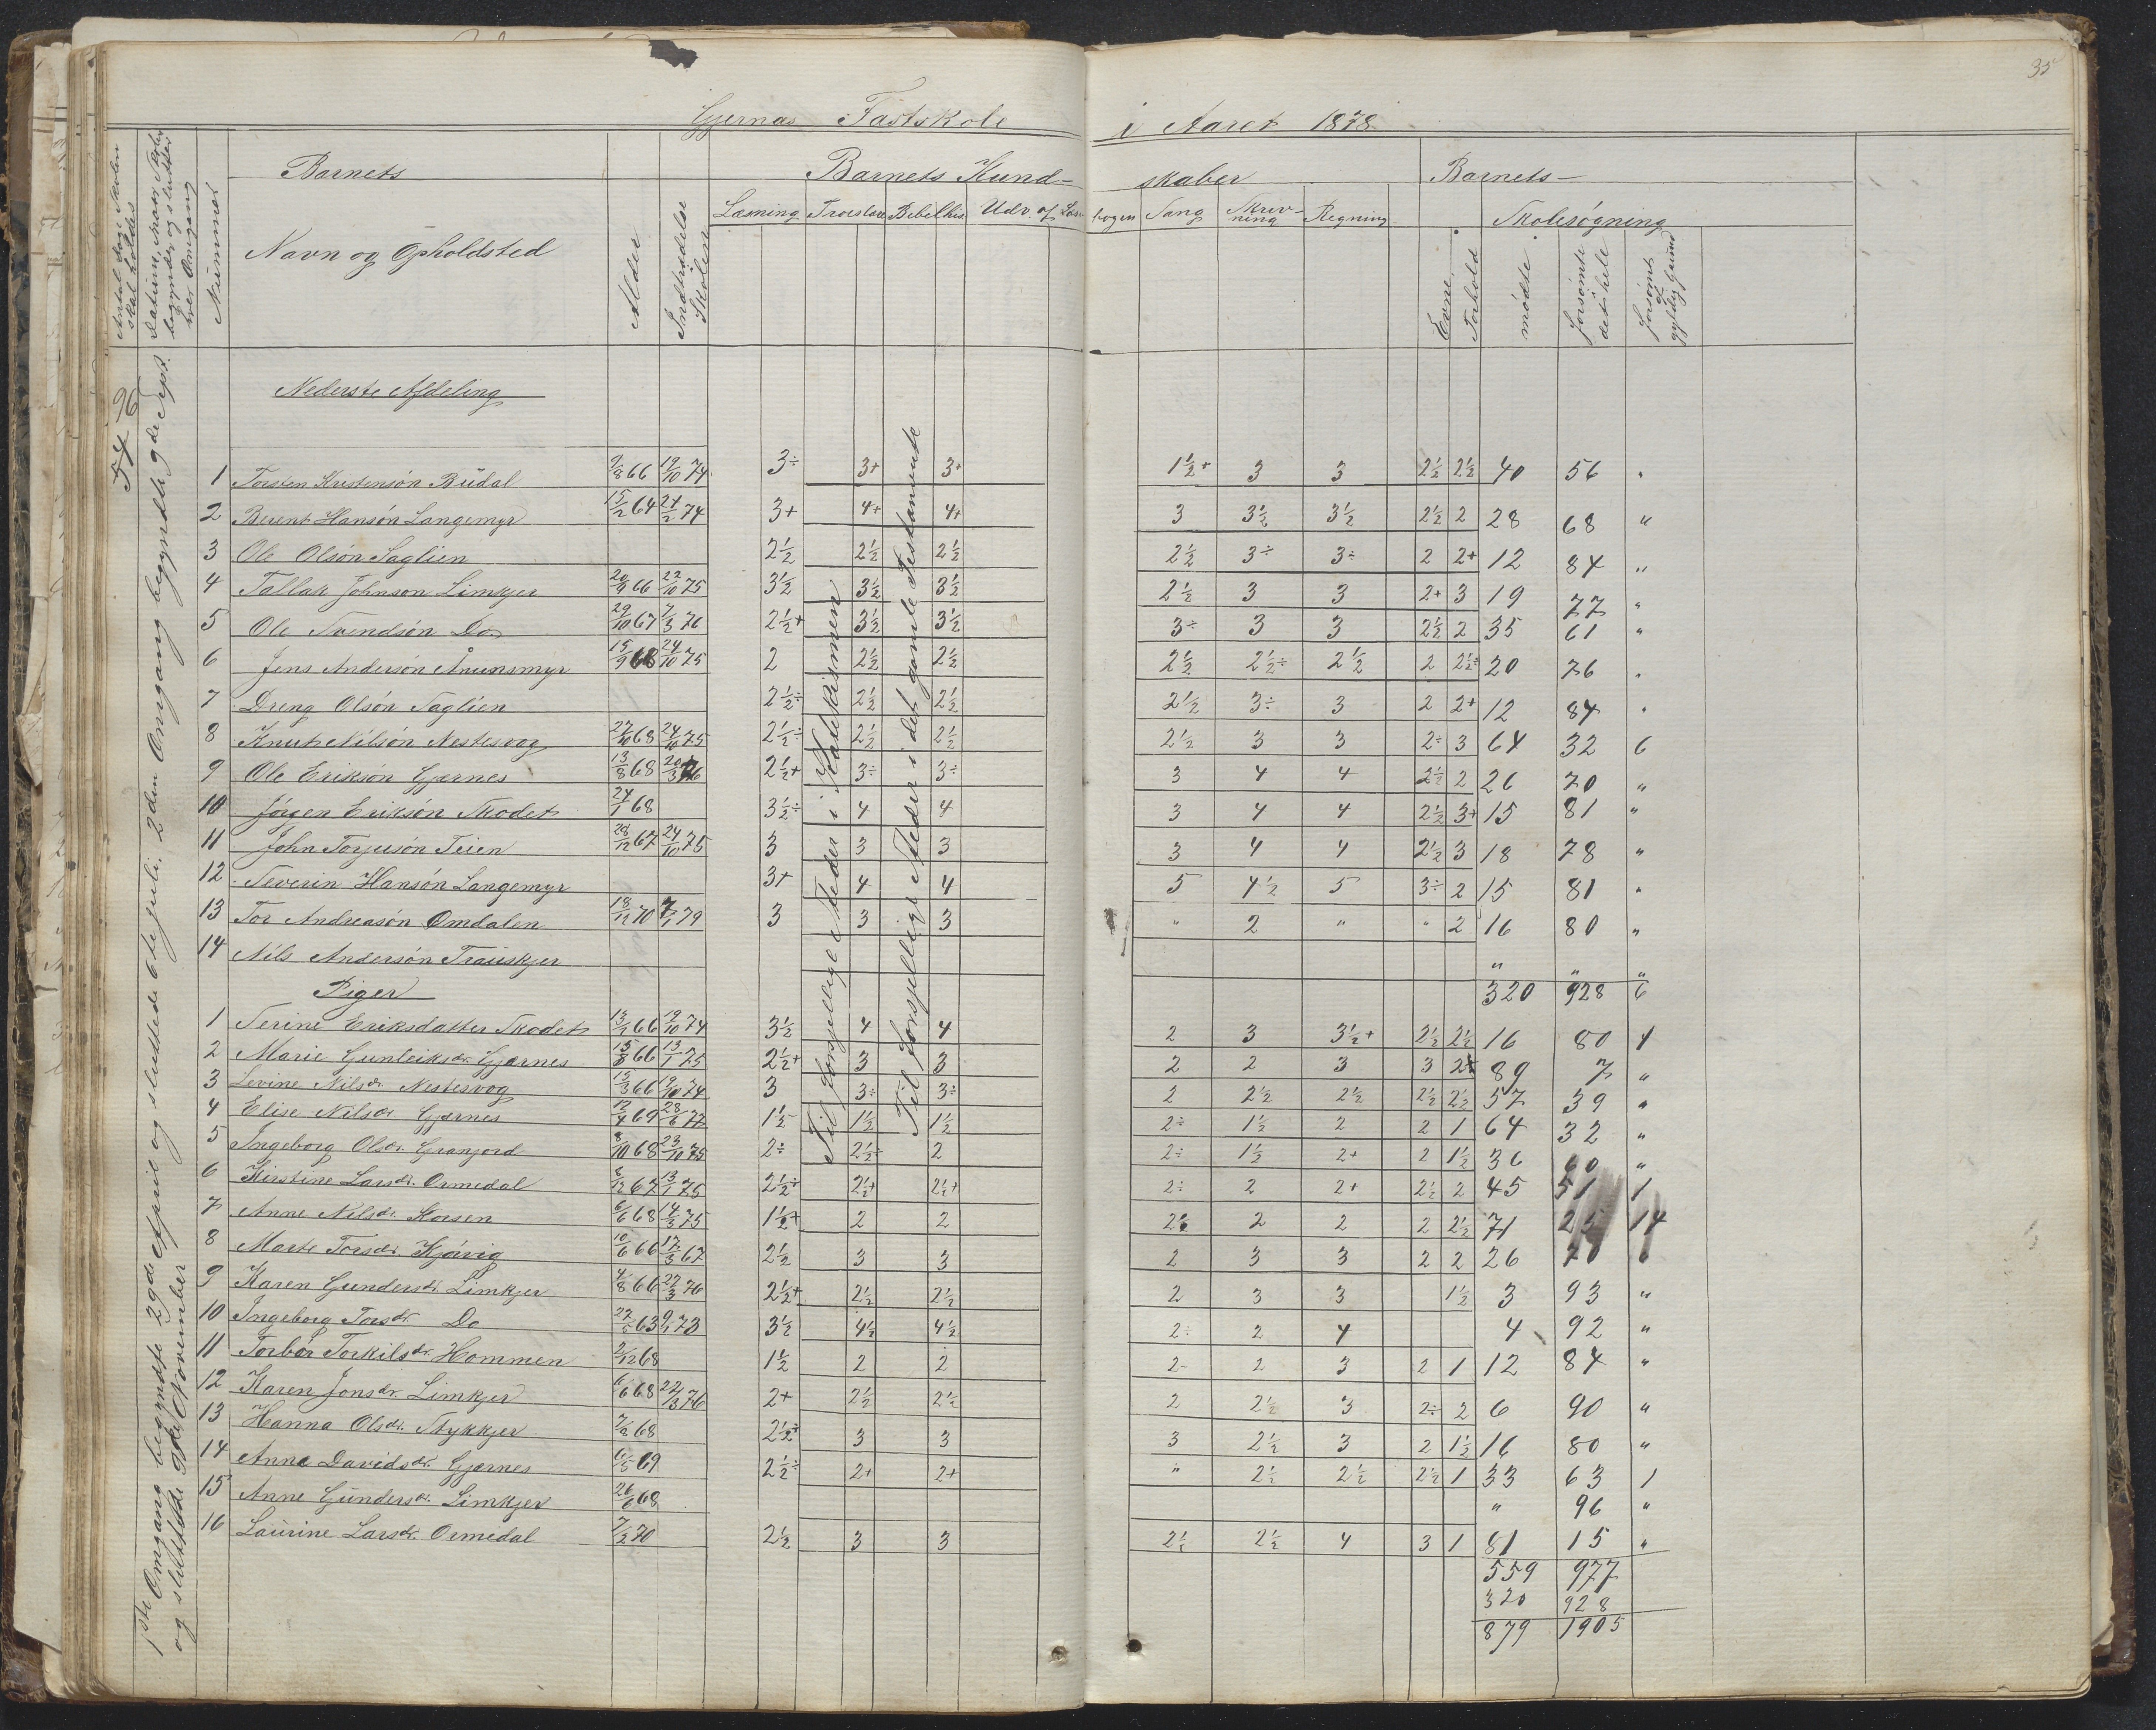 35
Gjernas Fastskole i Aaret 1878
Barnets Barnets Kundskaber Barnets
Antal Dage Skolen skal holdes
Datum, naar Skolen begynder og slutter hver Omgang
Nummer
Navn og Opholdsted
Alder
Indtrædelse Skolen
Læsning Troeslære Bibelhis. Udv. af Læsebogen Sang Skrivning Regning
Evne Forhold
Skolesøgning
mødte
forsømte det hele
forsømt af gyldig Grund
Nederste Afdeling
54 96
1ste Omgang begyndte 29de April og sluttede 6te juli. 2den Omgang begyndte 9de Sept.
og sluttede 9de November
Til forsjellige Steder i Katekismen
Til forsjellige Steder i det gamle Testamente
1 Torsten Kristensøn Büdal 9/8 66 19/10 74 3÷ 3+ 3+ 1½+ 3 3 2½ 2½ 40 56 "
2 Berent Hansøn Langemyr 15/2 64 21/2 74 3+ 4+ 4+ 3 3½ 3½ 2½ 2 28 68 "
3 Ole Olsøn Saglien 2½ 2½ 2½ 2½ 3÷ 3÷ 2 2+ 12 84 "
4 Tallak Johnson Limkjer 20/9 66 22/10 75 3½ 3½ 3½ 2½ 3 3 2+ 3 19 77 "
5 Ole Svendsøn Do 29/10 67 7/3 76 2½+ 3½ 3½ 3÷ 3 3 2½ 2 35 61 "
6 Jens Andersøn Ånunsmyr 15/9 68 24/10 75 2 2½ 2½ 2½ 2½÷ 2½ 2 2½÷ 20 76 "
7 Dreng Olsøn Saglien 2½÷ 2½ 2½ 2½ 3÷ 3 2 2+ 12 84 "
8 Knut Nilsøn Nestesvog 27/10 68 24/10 75 2½÷ 2½ 2½ 2½ 3 3 2÷ 3 64 32 6
9 Ole Eriksøn Gjernes 13/8 68 20/3 76 2½+ 3÷ 3÷ 3 4 4 2½ 2 26 70 "
10 Jørgen Eriksøn Skodet 24/1 68 3½÷ 4 4 3 4 4 2½ 3+ 15 81 "
11 John Torjusøn Teien 28/12 67 24/10 75 3 3 3 3 4 4 2½ 3 18 78 "
12 Severin Hansøn Langemyr 3+ 4 4 5 4½ 5 3÷ 2 15 81 "
13 Tor Andreasøn Omdalen 18/12 70 7/1 79 3 3 3 " 2 " " 2 16 80 "
14 Nils Andersøn Trauskjer " " "
Piger 320 928 6
1 Serine Eriksdatter Skodet 13/2 66 19/10 74 3½ 4 4 2 3 3½+ 2½ 2½ 16 80 4
2 Marie Gunleiksdr. Gjærnes 15/8 66 13/1 75 2½+ 3 3 2 2 3 3 2+ 89 7 "
3 Levine Nilsdr. Nestesvog 15/3 66 19/10 74 3 3÷ 3÷ 2 2½ 2½ 2½ 2½ 57 39 "
4 Elise Nilsdr. Gjærnes 12/4 69 28/6 77 1½ 1½ 1½ 2÷ 1½ 2 2 1 64 32 "
5 Ingeborg Olsdr. Granjord 8/10 68 23/10 75 2÷ 2½÷ 2 2÷ 1½ 2+ 2 1½ 36 60 "
6 Kirstine Larsdr. Ormedal 8/12 67 13/1 75 2½÷ 2½+ 2½+ 2÷ 2 2+ 2½ 2 45 51 1
7 Anne Nilsdr. Korsen 6/6 68 14/3 75 1½+ 2 2 2½ 2 2 2 2½ 71 25 14
8 Marte Torsdr. Kjørvig 10/6 66 17/3 67 2½ 3 3 2 3 3 2 2 26 70 "
9 Karen Gundersdr. Limkjer 4/8 66 22/3 76 2½+ 2½ 2½ 2 3 3 1½ 3 93 "
10 Ingeborg Torsdr. Do 27/5 63 9/1 73 3½ 4½ 4½ 2÷ 2 4 4 92 "
11 Torbør Torkilsdr. Hommen 2/12 68 1½ 2 2 2- 2 3 2 1 12 84 "
12 Karen Jonsdr. Limkjer 6/6 68 22/3 76 2+ 2½ 2½ 2 2½ 3 2÷ 2 6 90 "
13 Hanna Olsdr. Stykkjer 7/2 68 2½÷ 3 3 3 2½ 3 2 1½ 16 80 "
14 Anne Davidsdr. Gjærnes 6/5 69 2½÷ 2+ 2+ " 2½ 2½ 2½ 1 33 63 1
15 Anne Gündersdr. Limkjer 26/6 68 " 96 "
16 Laurine Larsdr. Ormedal 7/2 70 2½ 3 3 2½ 2½ 4 3 1 81 15 "
559 977
320 928
879 1905